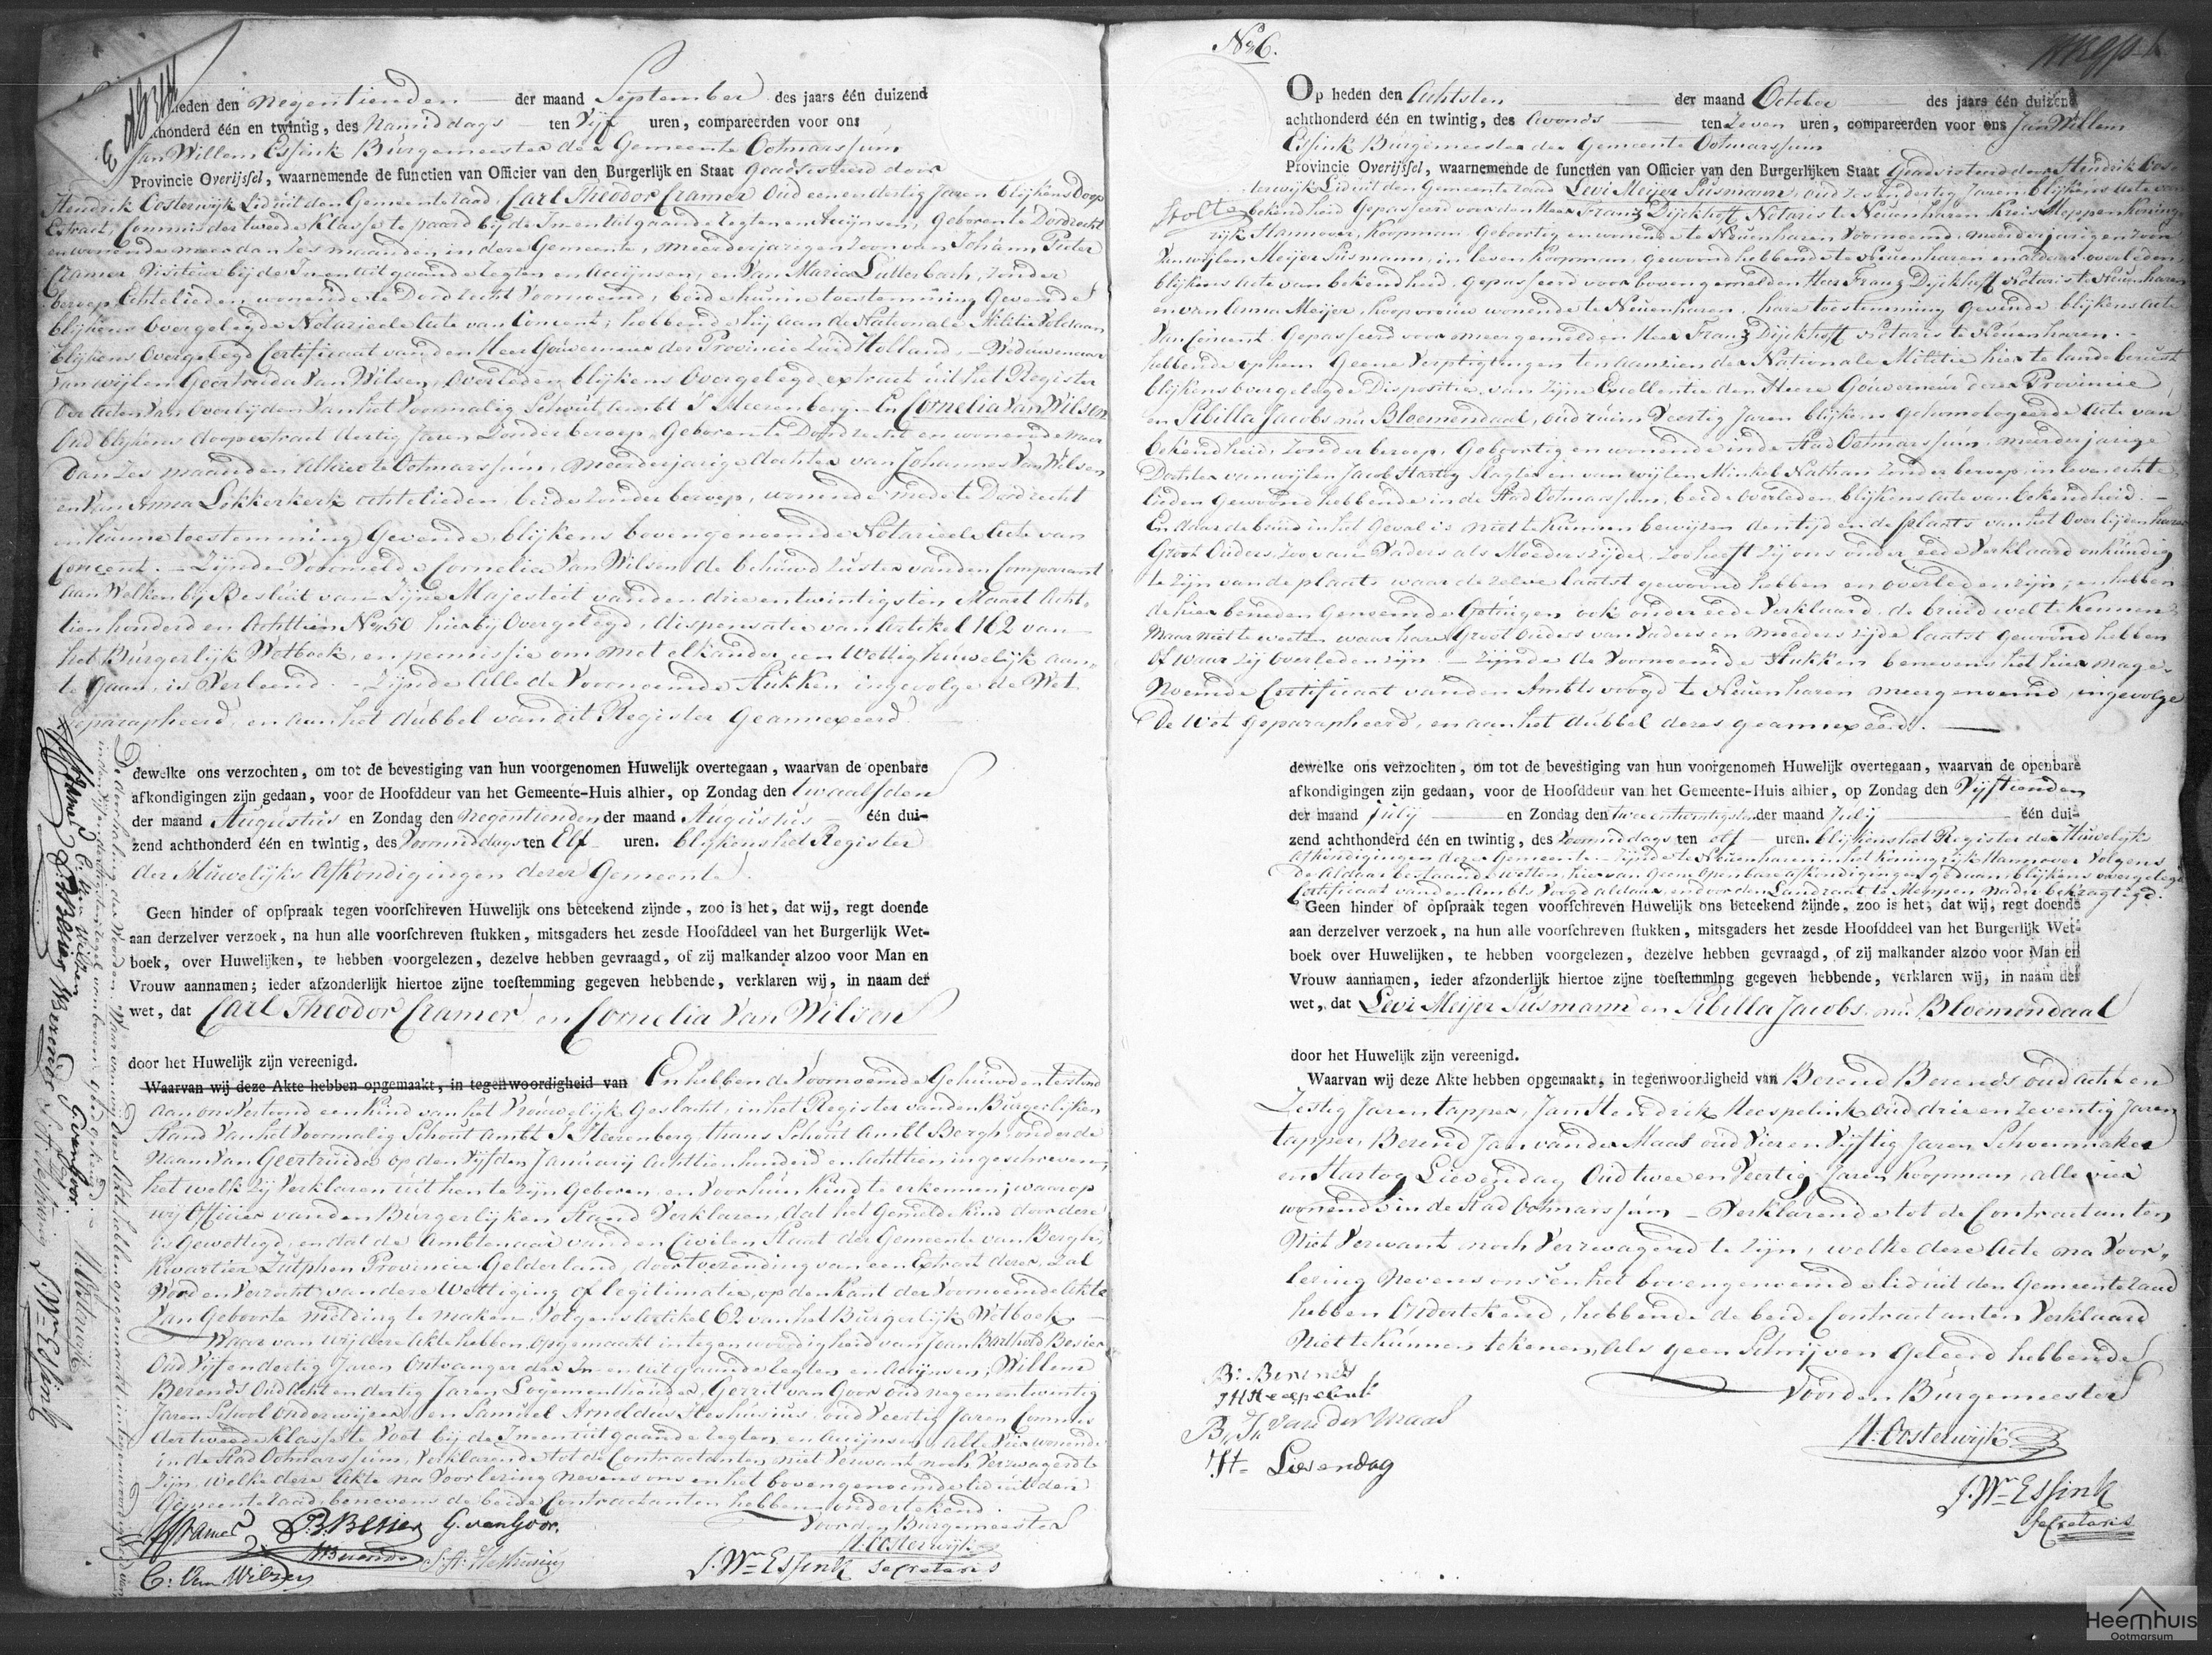 heden den Negentienden der maand September des jaars één duizend
honderd één en twintig, des Namiddags ten Vijf uren, compareerden voor ons
Jan Willem Essink Burgemeester der Gemeente Ootmarssum
Provincie Overijssel, waarnemende de functien van Officier van den Burgerlijk en Staat Geadsisteerd door
Hendrik Oosterwijk Lid uit den Gemeente raad, Carl Theodor Cramer Oud een en dertig Jaren blijkens Doop
Extract, Commis der tweede Klasse te paard bij de In en Uitgaande Regten en Accijnsen, Geboren te Dordrecht
en wonende meer dan Zes maanden in deze Gemeente, meerderjarigen Zoon van Johann Peter
Cramer Visiteur bij de In en uitgaande regten en Accijnsen, en Van Maria Lutterbach, Zonder
beroep Echtelieden, wonende te Dordrecht Voornoemd, beide hunne toestemming Gevende
blijkens Overgelegde Notarieele Acte van Consent; hebbende hij aan de Nationale Militie Voldaan
blijkens Overgelegd Certificaat van den Heer Gouverneur der Provincie Zuid Holland, Weduwenaar
van wijlen Geertruida Van Wilsen, Overleden blijkens Overgelegd extract uit het Register
der acten Van Overlijden Van het Voormalig Schout Ambt S' Heerenberg. En Cornelia Van Wilsen
Oud blijkens doopextract dertig Jaren Zonder beroep Geboren te Dordrecht en wonende meer
dan Zes maanden Alhier te Ootmarssum, Meerderjarige dochter van Johannes Van Wilsen
en Van Anna Lekkerkerk echtelieden, beide Zonder beroep, wonende mede te Dordrecht
en hunne toestemming Gevende, blijkens bovengenoemde Notarieele Acte van
Concent. Zijnde Voormelde Cornelia Van Wilsen de behuwd Zuster van den Comparant
aan Welken bij Besluit van Zijne Majesteit van den drie en twintigsten Maart Acht-
tien honderd en Achttien No 50 hierbij Overgelegd, dispensatie van Artikel 162 van
het Burgerlijk Wetboek, en permissie om met elkander een Wettig huwelijk aan
te Gaan, is Verleend. Zijnde Alle de Voornoemde Stukken ingevolge de Wet
geparapheerd, en aan het dubbel van dit Register Geannexeerd.
dewelke ons verzochten, om tot de bevestiging van hun voorgenomen Huwelijk overtegaan, waarvan de openbare
afkondigingen zijn gedaan, voor de Hoofddeur van het Gemeente-Huis alhier, op Zondag den twaalfden
der maand Augustus en Zondag den Negentienden der maand Augustus één dui-
zend achthonderd één en twintig, des Voormiddags ten Elf uren. blijkens het Register
der Huwelijks Afkondigingen dezer Gemeente.
Geen hinder of opspraak tegen voorschreven Huwelijk ons beteekend zijnde, zoo is het, dat wij, regt doende
aan derzelver verzoek, na hun alle voorschreven stukken, mitsgaders het zesde Hoofddeel van het Burgerlijk Wet-
boek, over Huwelijken, te hebben voorgelezen, dezelve hebben gevraagd, of zij malkander alzoo voor Man en
Vrouw aannamen; ieder afzonderlijk hiertoe zijne toestemming gegeven hebbende, verklaren wij, in naam der
wet, dat Carl Theodor Cramer en Cornelia Van Wilsen
door het Huwelijk zijn vereenigd.
Waarvan wij deze Akte hebben opgemaakt, in tegenwoordigheid van En hebben de Voornoemde Gehuwden terstond
aan ons Vertoond een Kind van het Vrouwelijk Geslacht, in het Register van den Burgerlijken
Stand Van het Voormalig Schout Ambt S' Heerenberg, thans Schout Ambt Bergh, onder de
Naam Van Geertruida op den Vijfden January Achttien honderd en Achttien ingeschreven,
het welk Zij Verklaren uit hen te zijn Geboren en Voor hun Kind te erkennen; waarop
wij Officier van den Burgerlijken Stand Verklaren, dat het Gemelde Kind door deze
is Gewettigd, en dat de Ambtenaar van den Civilen Staat der Gemeente van Bergh,
Kwartier Zutphen Provincie Gelderland, door toezending van een Extract dezer, Zal
Worden Verzocht van deze Wettiging of legitimatie, op den kant der Voornoemde Akte
Van Geboorte melding te maken, Volgens Artikel 62 van het Burgerlijk Wetboek
Waar van wij deze Akte hebben opgemaakt in tegenwoordigheid van Jean Barthold Besier
Oud Vijf en dertig Jaren Ontvanger der In en uitgaande Regten en Accijnsen, Willem
Berends Oud Acht en dertig Jaren Logementhouder, Gerrit van Goor oud negen en twintig
Jaren School Onderwijzer, en Samuel Arnoldus Heshusius, oud Veertig Jaren Commis
der tweede Klasse te Voet bij de In en uitgaande regten en Accijnsen Alle Vier wonende
in de Stad Ootmarssum, Verklarende tot de Contractanten niet Verwant noch Verzwagerd te
Zijn, welke deze Akte na Voorlezing nevens ons en het bovengenoemde lid uit den
Gemeente raad, benevens de beide Contractanten hebben ondertekend.
Voor den Burgemeester
J.B. Besier G. van Goor.
H. Oosterwijk
WBerends S.A. Heshusius
C: Van Wilsen
J. Wm Essink Secretaris
C. Van Wilsen
J. B. Besier WBerends G van Goor.
S.A. Heshusius H. Oosterwijk J. Wm Essink
No 6.
Op heden den Achtsten der maand October des jaars één duizend
achthonderd één en twintig, des Avonds ten Zeven uren, compareerden voor ons Jan Willem
Essink Burgemeester der Gemeente Ootmarssum
Provincie Overijssel, waarnemende de functien van Officier van den Burgerlijken Staat Geadsisteerd door Hendrik Oos-
terwijk Lid uit den Gemeente raad Levi Meijer Susmann, oud Zes en dertig Jaren blijkens Acte van
bekendheid Gepasseerd voor den Heer Franz Dijckhoff, Notaris te Neuenharen Kreis Meppen Koning-
rijk Hannover, Koopman, Geboortig en wonende te Neuenharen Voornoemd, meerderjarigen zoon
Van wijlen Meijer Susmann, in leven Koopman, gewoond hebbende te Neuenharen en aldaar overleden
blijkens Acte van bekendheid, Gepasseerd voor bovengemelden Heer Franz Dijckhoff Notaris te Neuenharen
en van Anna Meijer, Koopvrouw wonende te Neuenharen, hare toestemming Gevende blijkens Acte
Van Concent, Gepasseerd voor meergemelden Heer Franz Dijckhoff Notaris te Neuenharen.
hebbende op hem Geene Verpligtingen ten aanzien der Nationale Militie hier te lande berust
blijkens overgelegde Dispositie van Zijne Excellentie den Heere Gouverneur dezer Provincie,
en Sibilla Jacobs nu Bloemendaal, oud ruim Veertig Jaren blijkens Gehomologeerde Acte van
bekendheid, Zonder beroep, Geboortig en wonende in de Stad Ootmarssum, meerderjarige
Dochter van wijlen Jacob Hartog Slagter en van wijlen Minkel Nathan Zonder beroep, in leven echte
lieden Gewoond hebbende in de Stad Ootmarssum, beide Overleden, blijkens Acte van bekendheid.
En daar de bruid in het Geval is niet te kunnen bewijzen den tijd en de plaats van het Overlijden harer
Groot Ouders, Zoo van Vaders als Moederszijde, zoo heeft zij ons onder eede Verklaard onkundig
te zijn van de plaats waar dezelve laatst gewoond hebben en overleden zijn; en hebben
de hier beneden Genoemde Getuigen ook onder eede Verklaard, de bruid wel te Kennen
Maar niet te weten waar hare Groot Ouders van Vaders en moeders zijde laatst Gewoond hebben
Of waar zij Overleden zijn. Zijnde de Voornoemde Stukken benevens het hier nage-
Noemde Certificaat van den Ambts voogd te Neuenharen meergenoemd, ingevolge
De Wet Geparapheerd, en aan het dubbel dezes geannexeerd.
dewelke ons verzochten, om tot de bevestiging van hun voorgenomen Huwelijk overtegaan, waarvan de openbare
afkondigingen zijn gedaan, voor de Hoofddeur van het Gemeente-Huis alhier, op Zondag den Vijftienden
der maand July en Zondag den twee en twintigsten der maand July één dui-
zend achthonderd één en twintig, des Voormiddags ten elf uren. blijkens het Register der Huwelijks
Afkondigingen dezer Gemeente. Zijnde te Neuenharen in het Koningrijk Hannover Volgens
De Aldaar bestaande wetten, hier van Geene Openbare afkondigingen gedaan, blijkens overgelegd
Certificaat van den Ambts Voogd aldaar, en door den Landraat te Meppen nader bekragtigd.
Geen hinder of opspraak tegen voorschreven Huwelijk ons beteekend zijnde, zoo is het, dat wij, regt doende
aan derzelver verzoek, na hun alle voorschreven stukken, mitsgaders het zesde Hoofddeel van het Burgerlijk Wet-
boek over Huwelijken, te hebben voorgelezen, dezelve hebben gevraagd, of zij malkander alzoo voor Man en
Vrouw aannamen, ieder afzonderlijk hiertoe zijne toestemming gegeven hebbende, verklaren wij, in naam der
wet, dat Levi Meijer Susmann en Sibilla Jacobs nu Bloemendaal
door het Huwelijk zijn vereenigd.
Waarvan wij deze Akte hebben opgemaakt, in tegenwoordigheid van Berend Berends oud acht en
Zestig Jaren tapper, Jan Hendrik Heespelink oud drie en Zeventig Jaren
tapper, Berend Jan van der Maas oud Vier en Vijftig Jaren Schoenmaker
en Hartog Lievendag Oud twee en Veertig Jaren Koopman, alle vier
wonende in de Stad Ootmarssum Verklarende tot de Contractanten
Niet Verwant noch Verzwagerd te Zijn, welke deze Acte na Voor-
lezing Nevens ons en het bovengenoemde lid uit den Gemeente raad
hebben Ondertekend, hebbende de beide Contractanten Verklaard
Niet te Kunnen tekenen, Als geen Schrijven Geleerd hebbende
Voor den Burgemeester
B: Berends
JHHeespelink
B, J, van der Maas
H. Oosterwijk
H= Lievendag
J. Wm Essink
Secretaris
Heemhuis
Ootmarsum